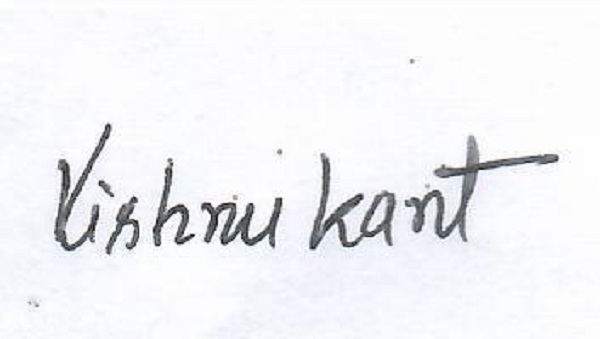 Vishnu kant